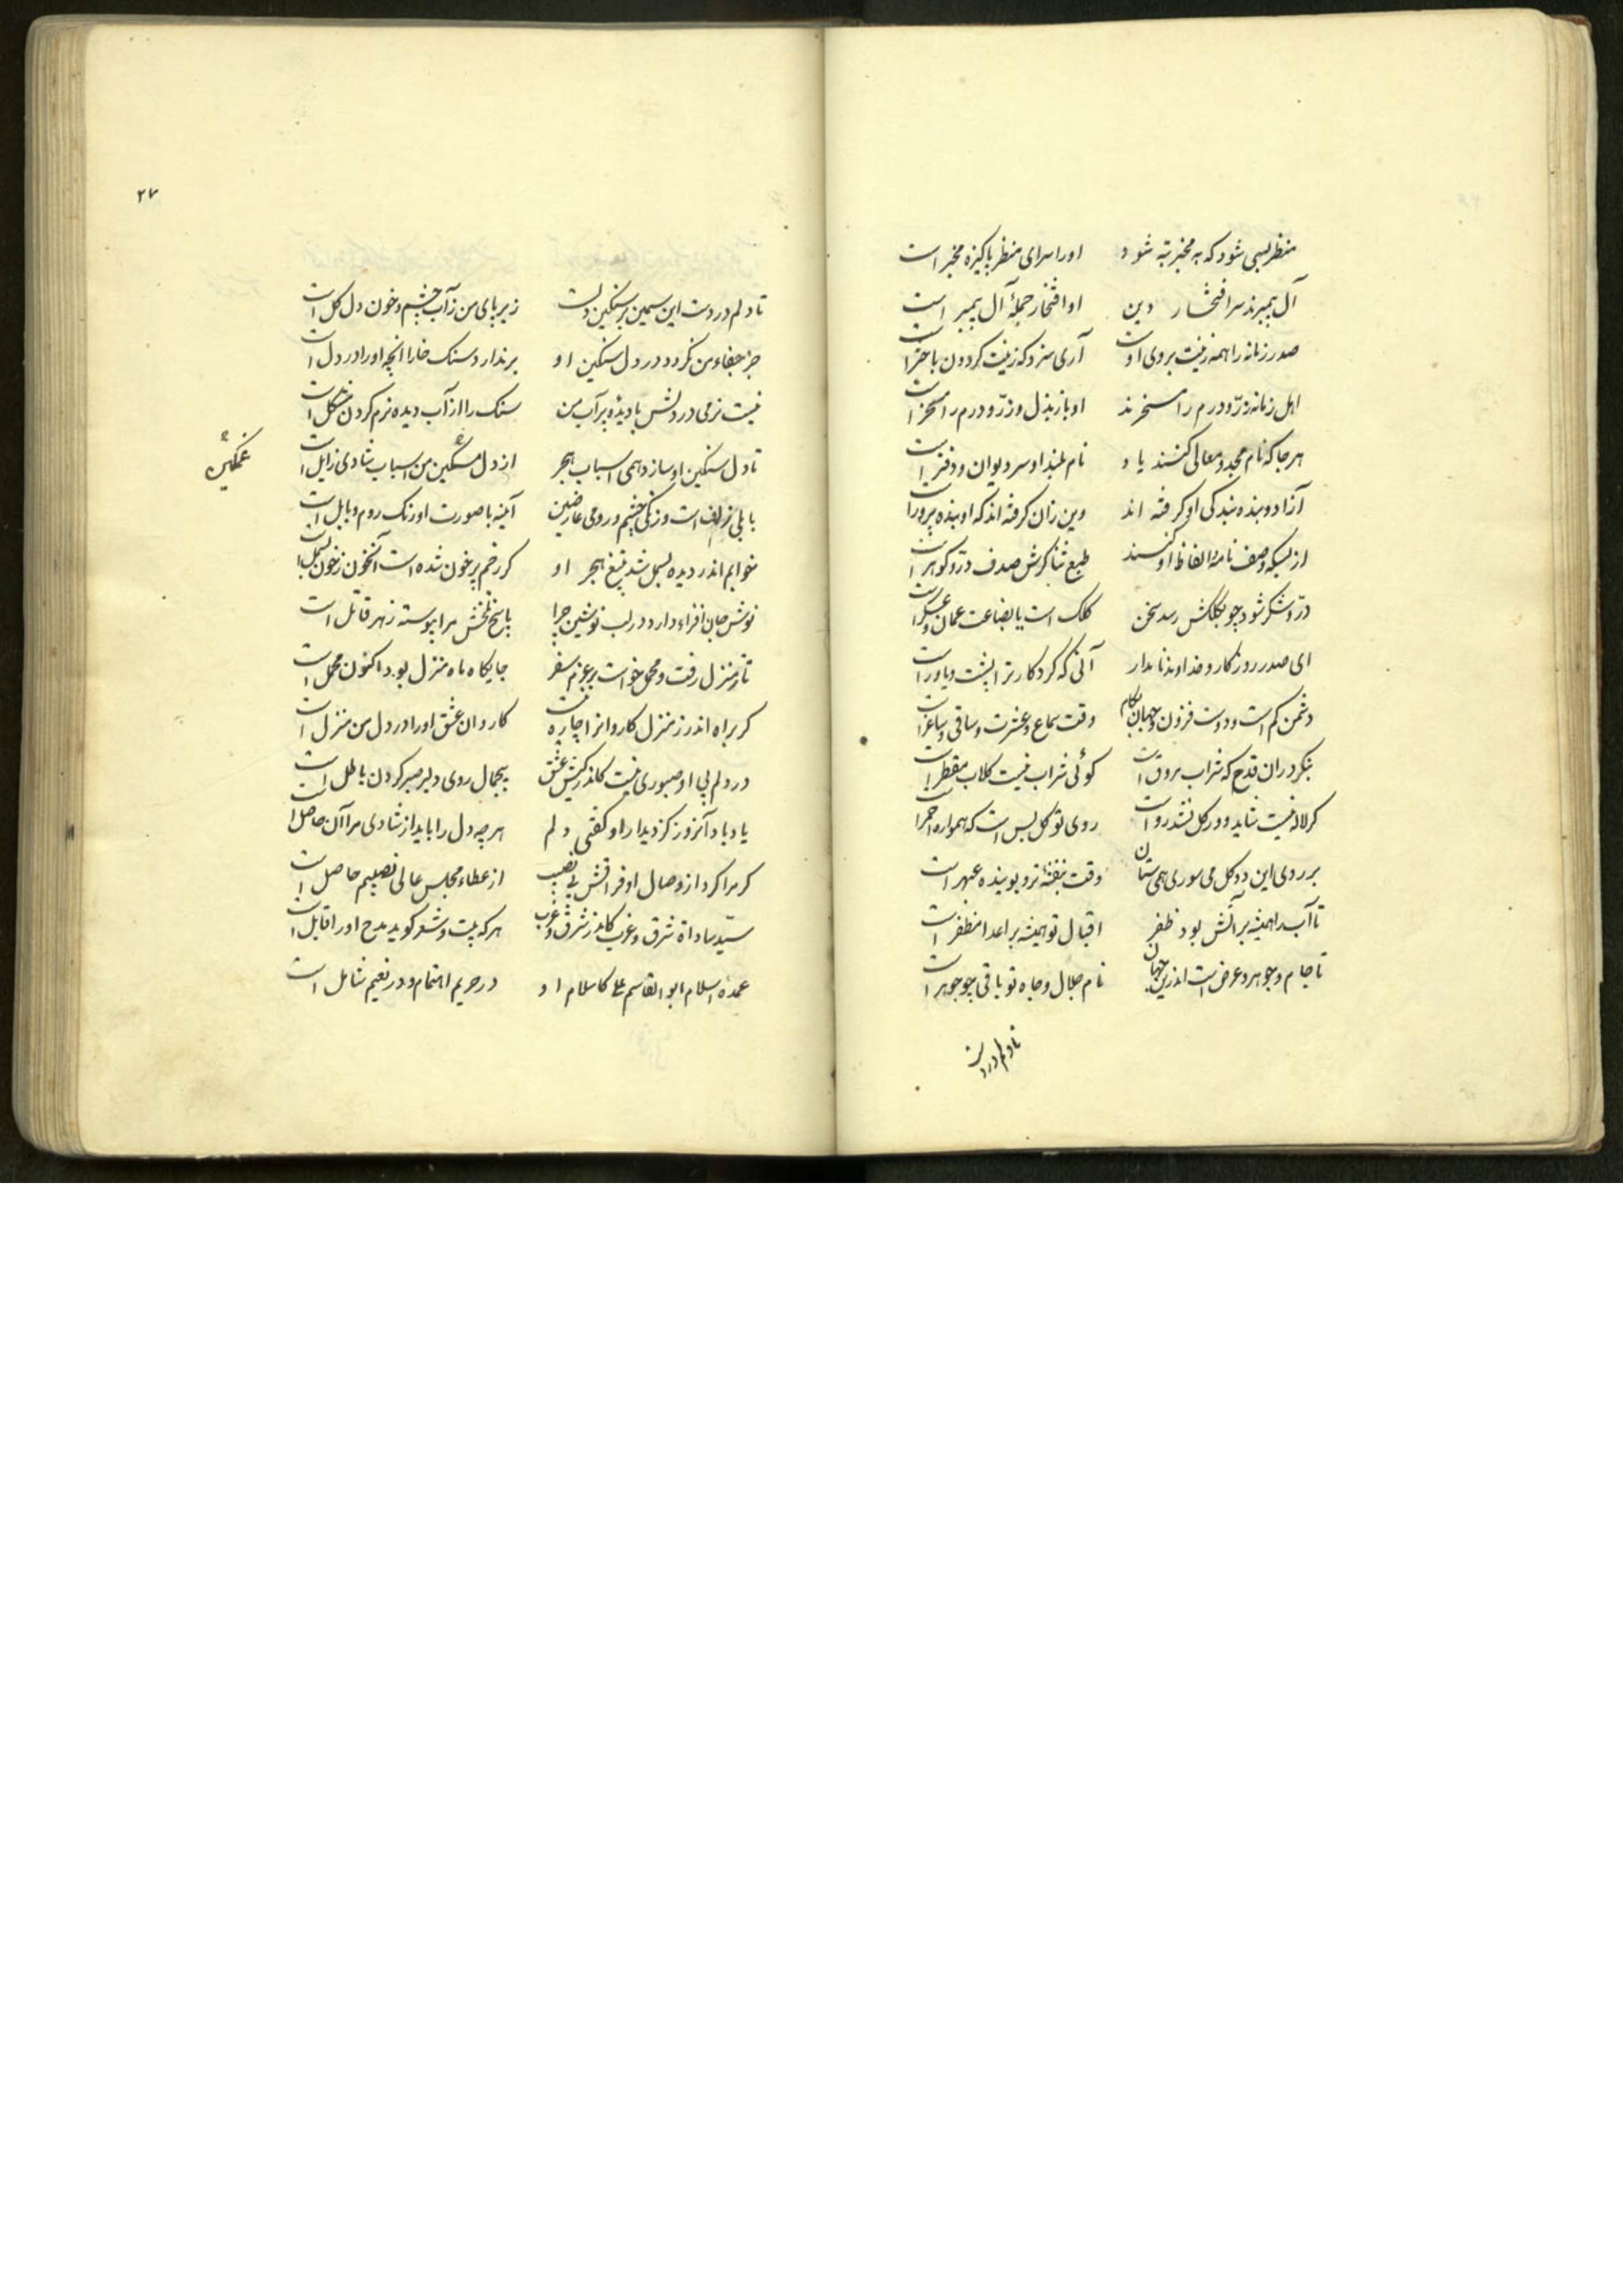 منظر بسی شود که به مخبر تبه شود اورا سرای منظر پاکیزه مخبر است
آل پیمبرند سر افتخار دین او افتخار جملهٔ آل پیمبر است
صدر زمانه را همه زینت بروی اوست آری سزد که زینت کردون باختر است
اهل زمانه زرّ و درم را مسخرند او باز بذل و زرّ و درم را مسخر است
هر جا که نام مجد و معالی کنند یاد نام بلند او سر دیوان و دفتر است
آزاد و بنده بندکی او کرفته اند وین زان کرفته اند که او بنده پرور است
از بسکه وصف نامهٔ الفاظ او کنند طبع ثناکرش صدف درّ و کوهر است
درّ و شکر شود چو بکلکش رسد سخن کلک است یا بضاعت عمان و عسکر است
ای صدر روزکار و خداوند نامدار آنی که کردکار ترا پشت و یاور است
دشمن کم است و دوست فزون و جهان بکام وقت سماع و عشرت و ساقی و ساغر است
بنکر در ان قدح که شراب مروق است کوئی شراب نیست کلاب مقطر است
کر لاله نیست شاید و ور کل نشد رواست روی تو کل بس است که همواره احمر است
بر روی این دو کل می سوری همی ستان وقت بنفشهٔ تر و بوینده عبهر است
تا آب را همیشه بر آتش بود ظفر اقبال تو همیشه بر اعدا مظفر است
تا جام و جوهر و عرض است اندرین جهان نام جلال و جاه تو باقی چو جوهر است
تا دلم در دست
۲۷
تا دلم در دست این سیمین بر سنکین دلست زیر پای من ز آب چشم و خون دل کل است
جز جفاء من نکردد در دل سنکین او بر ندارد سنک خارا انچه اورا در دل است
نیست نرمی در دلش با دیدهٔ پر آب من سنک را از آب دیده نرم کردن مشکل است
تا دل سنکین او سازد همی اسباب هجر از دل مسکین من اسباب شادی زایل است
غمکین
بابلی زلف است و زنکی چشم و رومی عارضین آینه با صورت او رنک روم و بابل است
خوابم اندر دیده بسمل شد بتیغ هجر او کر رخم پر خون شده است آنخون ز خون بسمل است
نوش جان افزاء دارد در لب نوشین چرا پاسخ تلخش مرا پیوسته زهر قاتل است
تا ز منزل رفت و محمل خواست بر عزم سفر جایکاه ماه منزل بود اکنون محمل است
کر براه اندر ز منزل کاروانرا چاره نیست کاروان عشق اورا در دل من منزل است
در دلم بی او صبوری نیست کاندر کیش عشق بیجمال روی دلبر صبر کردن باطل است
یاد باد آنروز کز دیدار او کفتی دلم هر چه دل را باید از شادی مرا آن حاصل است
کر مرا کرد از وصال او فراقش بی نصیب از عطاء مجلس عالی نصیبم حاصل است
سیّد ساداة شرق و غرب کاندر شرق و غرب هر که بیت و شعر کوید مدح اورا قابل است
عمدهٔ اسلام ابو القاسم علی کاسلام او در حریم اهتمام و در نعیم شامل است